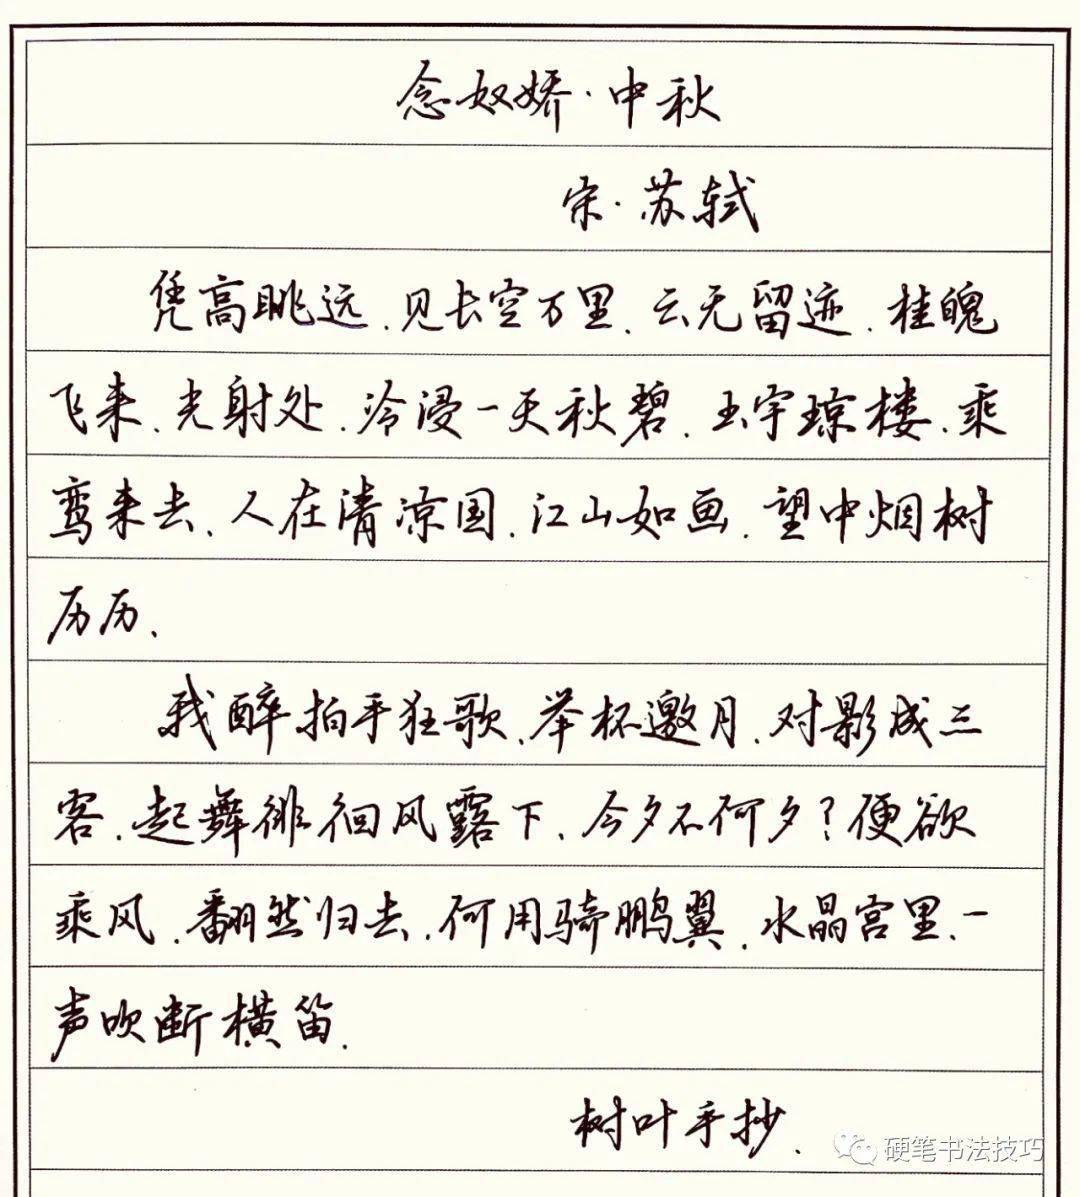 念奴娇·中秋
宋·苏轼
凭高眺远、见长空万里、云无留迹、桂魄
飞来、光射处、冷浸一天秋碧、玉宇琼楼、乘
鸾来去、人在清凉国、江山如画、望中烟树
历历、
我醉拍手狂歌、举杯邀月、对影成三
客、起舞徘徊风露下、今夕不何夕?便欲
乘风、翻然归去、何用骑鹏翼、水晶宫里、一
声吹断横笛、
树叶手抄、
硬笔书法技巧